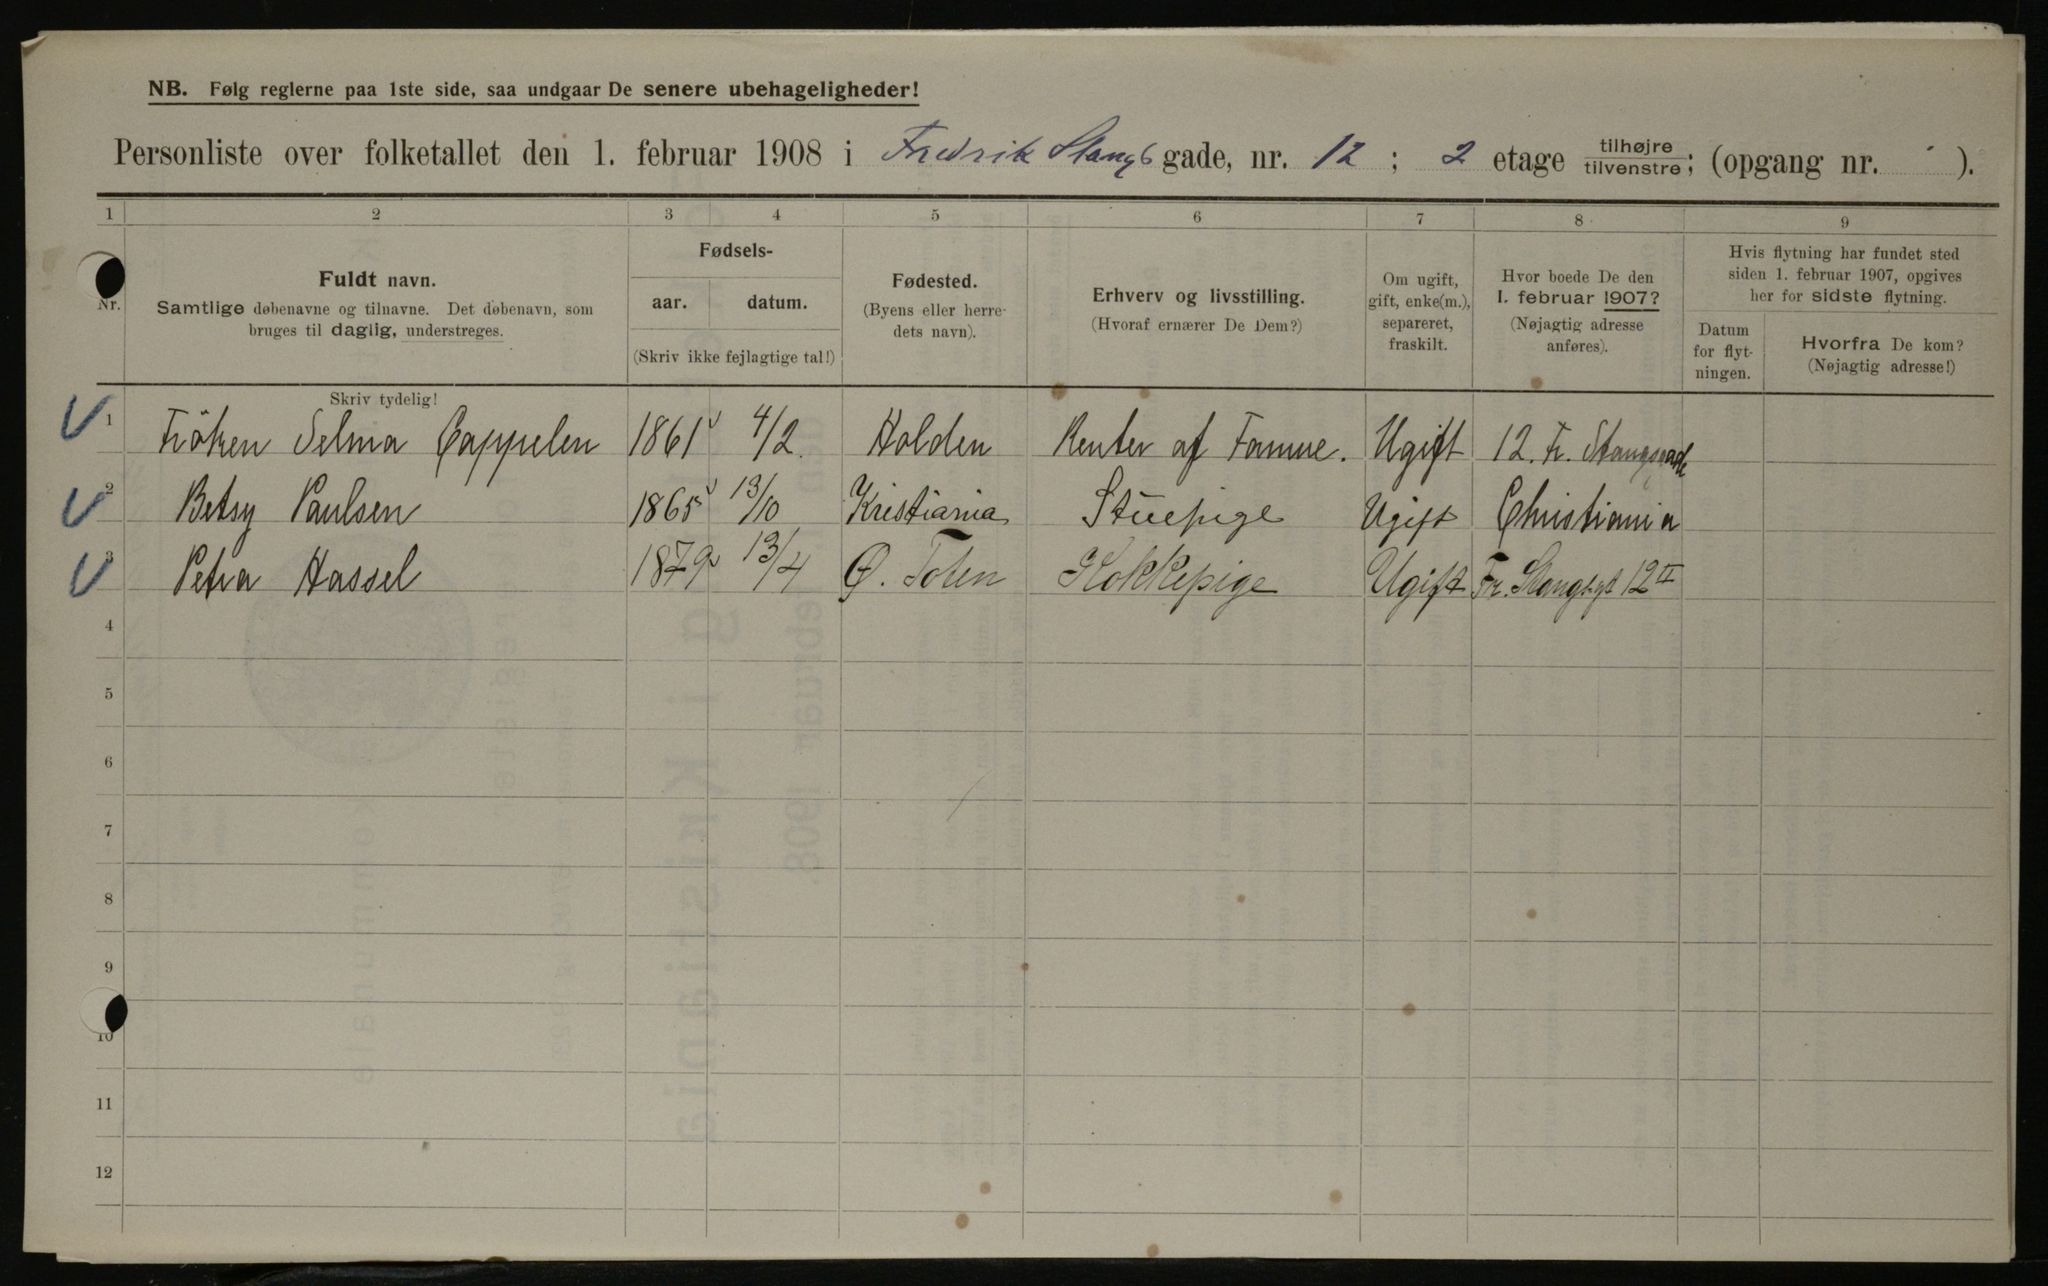 NB. Følg reglerne paa 1ste side, saa undgaar De senere ubehageligheder!
Personliste over folketallet den 1. februar 1908 i Fredrik Stangs gade, nr. 12 ; 2 etage tilhøjre tilvenstre; (opgang nr. ).
1 2 3 4 5 6 7 8 9
Nr.
Fuldt navn.
Samtlige døbenavne og tilnavne. Det døbenavn, som
bruges til daglig, understreges.
Skriv tydelig!
Fødsels-
aar. datum.
(Skriv ikke fejlagtige tal!)
Fødested.
(Byens eller herre-
dets navn).
Erhverv og livsstilling.
(Hvoraf ernærer De Dem?)
Om ugift,
gift, enke(m.),
separeret,
fraskilt.
Hvor boede De den
1. februar 1907?
(Nøjagtig adresse
anføres).
Hvis flytning har fundet sted
siden 1. februar 1907, opgives
her for sidste flytning.
Datum
for flyt-
ningen.
Hvorfra De kom?
(Nøjagtig adresse!)
1 Fröken Selma Cappelen 1861 4/2. Holden Renter af Formue. Ugift 12. Fr. Stangsgade
2 Betsy Paulsen 1865 13/10 Kristiania Stuepige Ugift Christiania
3 Petra Hassel 1879 13/4 Ø. Toten Kokkepige Ugift Fr. Stangsgt 12 II
4
5
6
7
8
9
10
11
12